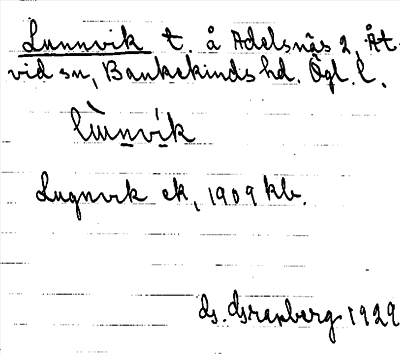 Lunnvik t. å Adelsnäs 2, Åt-
vid sn, Bankekinds hd. Ögl. l.
lùnnvík
Lugnvik ek, 1909 kb.
1929